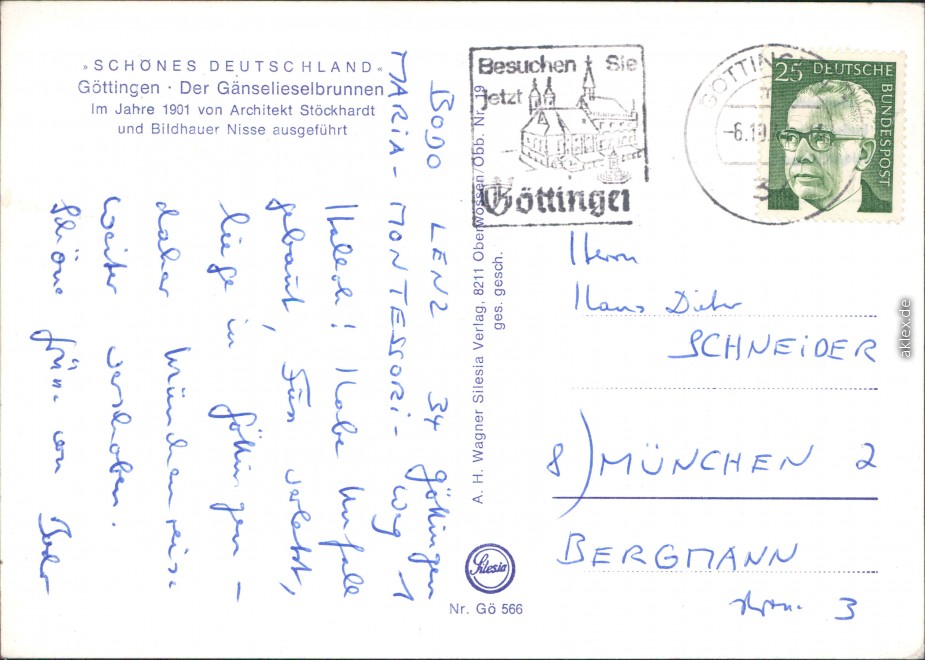 »SCHÖNES DEUTSCHLAND«
Göttingen · Der Gänselieselbrunnen
Im Jahre 1901 von Architekt Stöckhardt
und Bildhauer Nisse ausgeführt
BODO LENZ 34 Göttingen
MARIA-MONTESSORI-Weg 1
Hallo! Habe Unfall
gebaut, Fuss verletzt,
liege in Göttingen –
daher Münchenreise
weiter verschoben.
Schöne Grüsse von Bodo
A. H. Wagner Silesia Verlag, 8211 Oberwössen/Obb. Nr. 19
ges. gesch.
Silesia
Nr. Gö 566
Besuchen Sie
jetzt
Göttingen
GÖTTINGEN
-6.10.
3
25 DEUTSCHE
BUNDESPOST
Herrn
Hans Dieter
SCHNEIDER
8) MÜNCHEN 2
BERGMANN
3
aklex.de